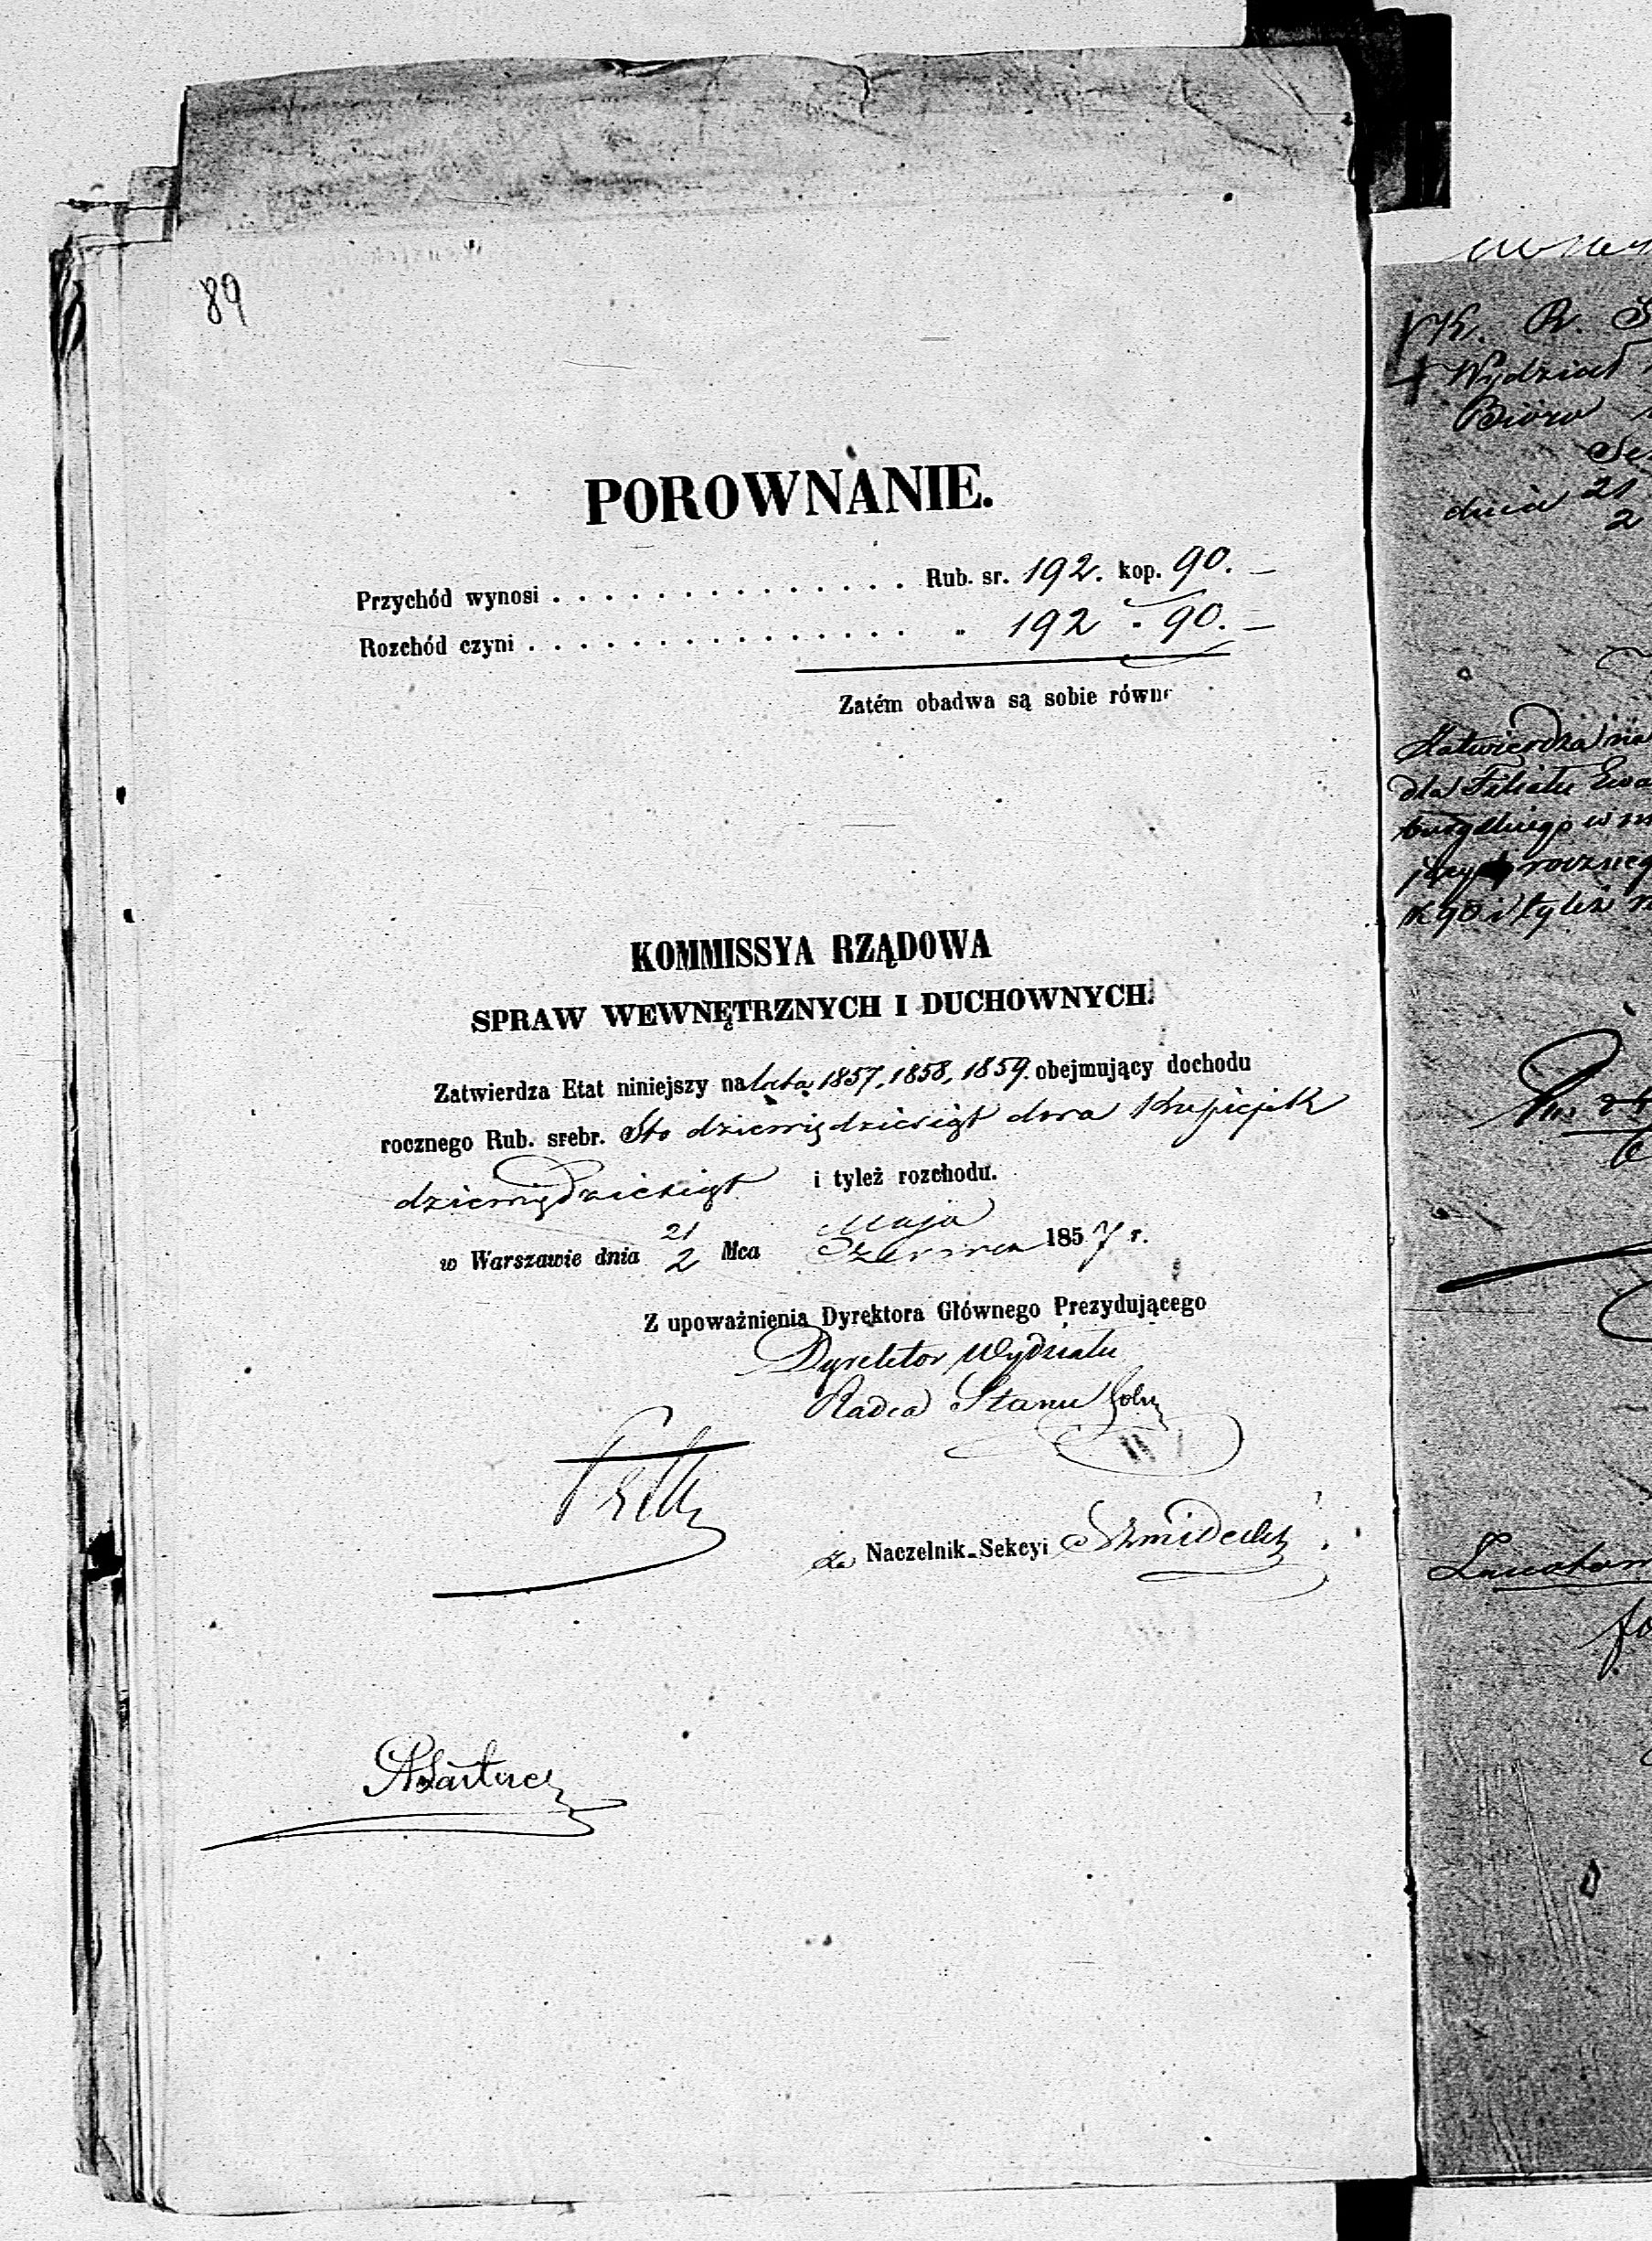 89
POROWNANIE.
Przychód wynosi . . . . . . . . . . . . . . Rub. sr. 192. kop. 90. —
Rozchód czyni . . . . . . . . . . . . . . . „ 192 - 90. —
Zatém obadwa są sobie równe
KOMMISSYA RZĄDOWA
SPRAW WEWNĘTRZNYCH I DUCHOWNYCH.
Zatwierdza Etat niniejszy na lata 1857, 1858, 1859. obejmujący dochodu
rocznego Rub. srebr. Sto dziewięćdziesiąt dwa kopiejek
dziewięćdziesiąt i tyleż rozchodu.
w Warszawie dnia 21/2 Mca Maja/Czerwca 1857 r.
Z upoważnienia Dyrektora Głównego Prezydującego
Dyrektor Wydziału
Radca Stanu
Za Naczelnik Sekcyi
K. R. S
Wydział
Bióro
Se
dnia 21
2
Zatwierdza
dla Filiału Ewa
burgskiego w m
rocznego
K 90 i tyleż